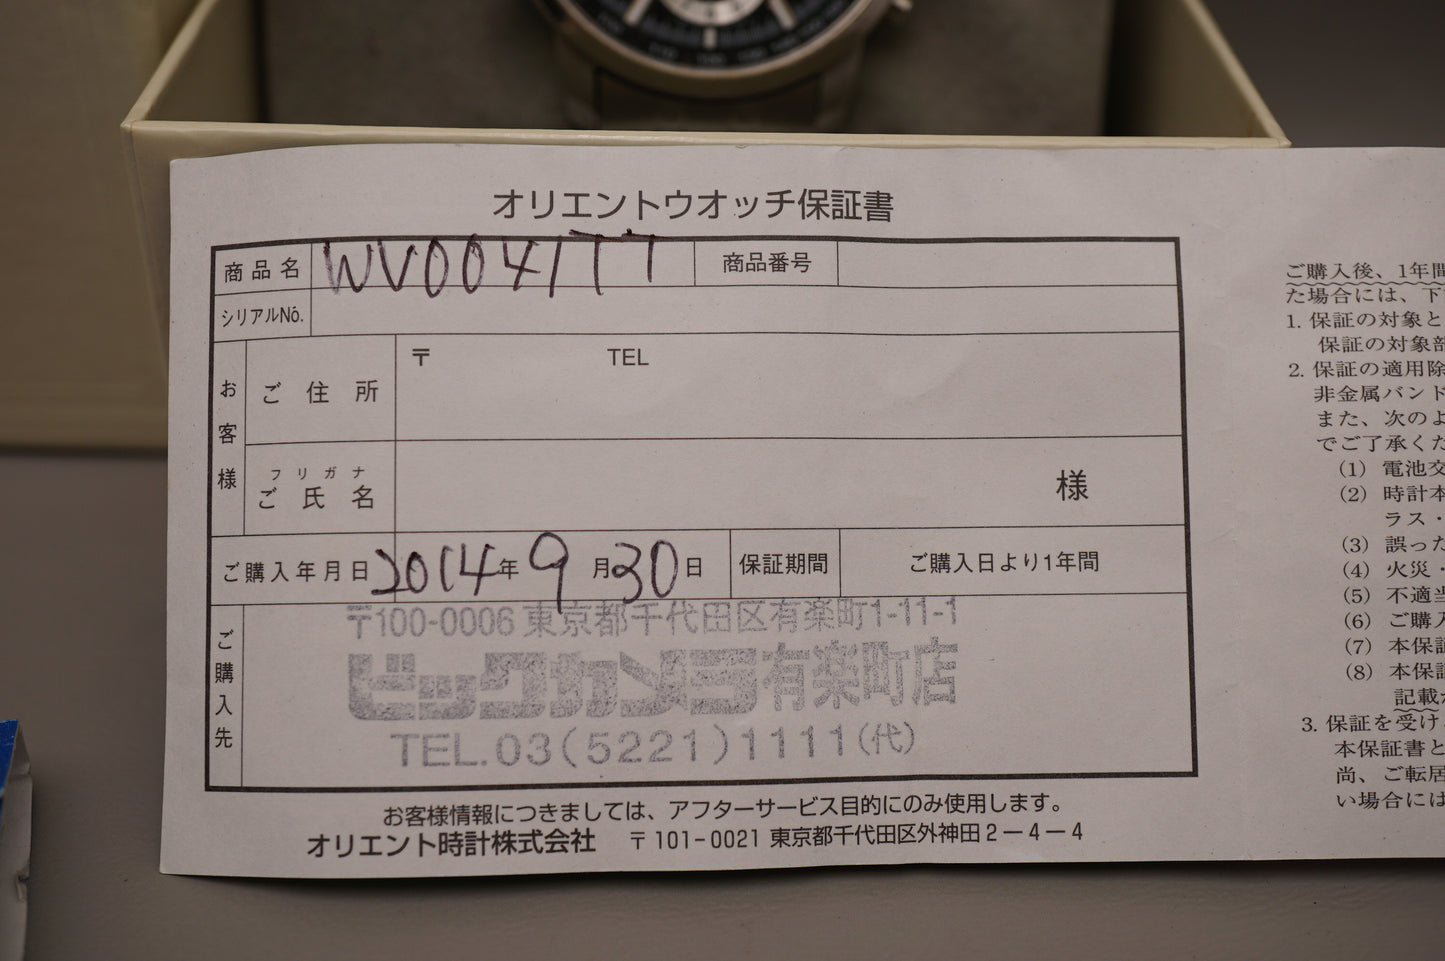 オリエントウオッチ保証書
商品名 WV0041TT 商品番号
シリアルNo.
お客様
ご住所 〒 TEL
フリガナ
ご氏名 様
ご購入年月日 2014年9月30日 保証期間 ご購入日より1年間
ご購入先
〒100-0006 東京都千代田区有楽町1-11-1
ビックカメラ有楽町店
TEL.03(5221)1111(代)
お客様情報につきましては、アフターサービス目的にのみ使用します。
オリエント時計株式会社 〒101-0021 東京都千代田区外神田2-4-4
ご購入後、1年間
た場合には、下
1. 保証の対象と
保証の対象部
2. 保証の適用除
非金属バンド
また、次のよ
でご了承くた
(1) 電池交
(2) 時計本
ラス・
(3) 誤った
(4) 火災・
(5) 不適当
(6) ご購入
(7) 本保証
(8) 本保証
記載
3. 保証を受け
本保証書と
尚、ご転居
い場合には